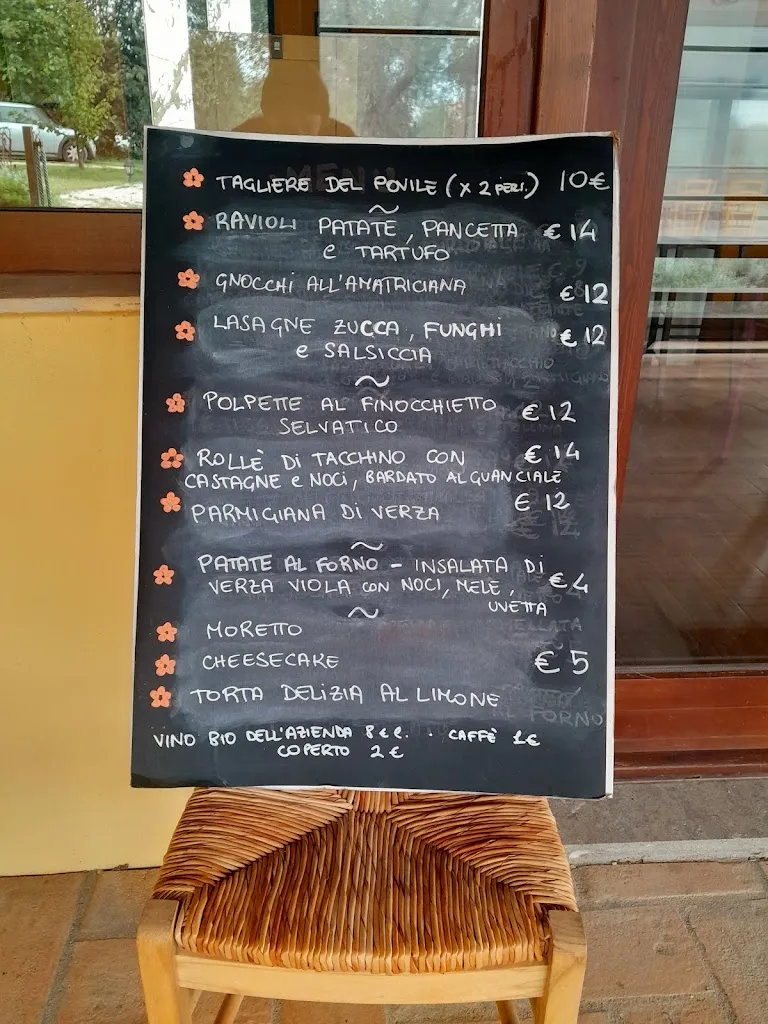 TAGLIERE DEL POVILE (x 2 PERS.) 10€
~
RAVIOLI PATATE, PANCETTA € 14
e TARTUFO
GNOCCHI ALL'AMATRICIANA € 12
LASAGNE ZUCCA, FUNGHI € 12
e SALSICCIA
~
POLPETTE AL FINOCCHIETTO € 12
SELVATICO
ROLLÈ Di TACCHINO CON € 14
CASTAGNE e NOCi, BARDATO AL GUANCIALE
PARMIGIANA Di VERZA € 12
~
PATATE AL FORNO - INSALATA Di
VERZA VIOLA CON NOCI, MELE, € 4
UVETTA
~
MORETTO
CHEESECAKE € 5
TORTA DELIZIA AL LIMONE
VINO BIO DELL'AZIENDA 8 € l. . CAFFÈ 1€
COPERTO 2 €